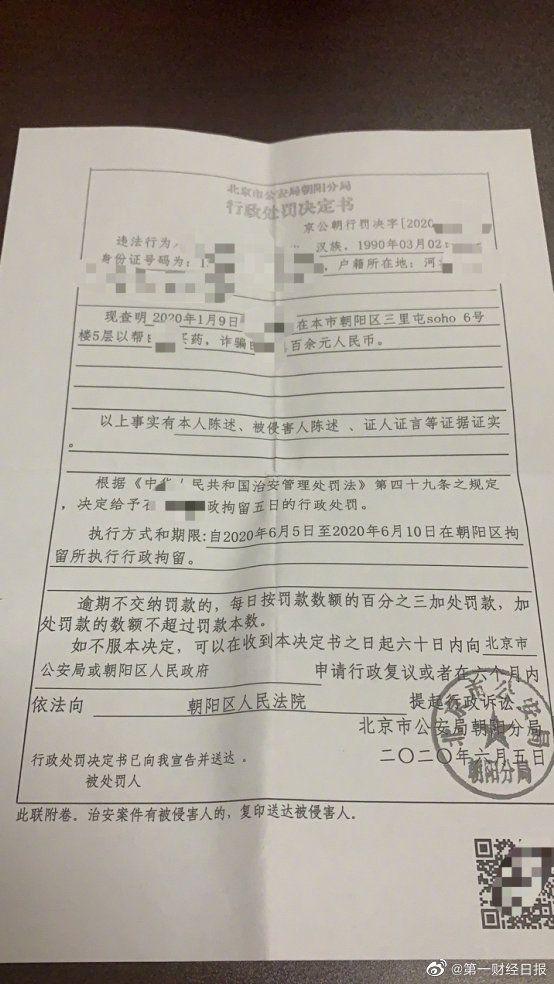 北京市公安局朝阳分局
行政处罚决定书
京公朝行罚决字[2020
违法行为人 汉族，1990年03月02
身份证号码为：1 ，户籍所在地：河
现查明 2020年1月9日 在本市朝阳区三里屯soho 6号
楼5层以帮 买药，诈骗 百余元人民币。
以上事实有本人陈述、被侵害人陈述 、证人证言等证据证实
。
根据《中华人民共和国治安管理处罚法》第四十九条之规定
，决定给予 政拘留五日的行政处罚。
执行方式和期限：自2020年6月5日至2020年6月10日在朝阳区拘
留所执行行政拘留。
逾期不交纳罚款的，每日按罚款数额的百分之三加处罚款，加
处罚款的数额不超过罚款本数。
如不服本决定，可以在收到本决定书之日起六十日内向 北京市
公安局或朝阳区人民政府 申请行政复议或者在六个月内
依法向 朝阳区人民法院 提起行政诉讼。
北京市公安局朝阳分局
二〇二〇年六月五日
北京市公安局
朝阳分局
行政处罚决定书已向我宣告并送达 。
被处罚人
此联附卷。治安案件有被侵害人的，复印送达被侵害人。
@第一财经日报